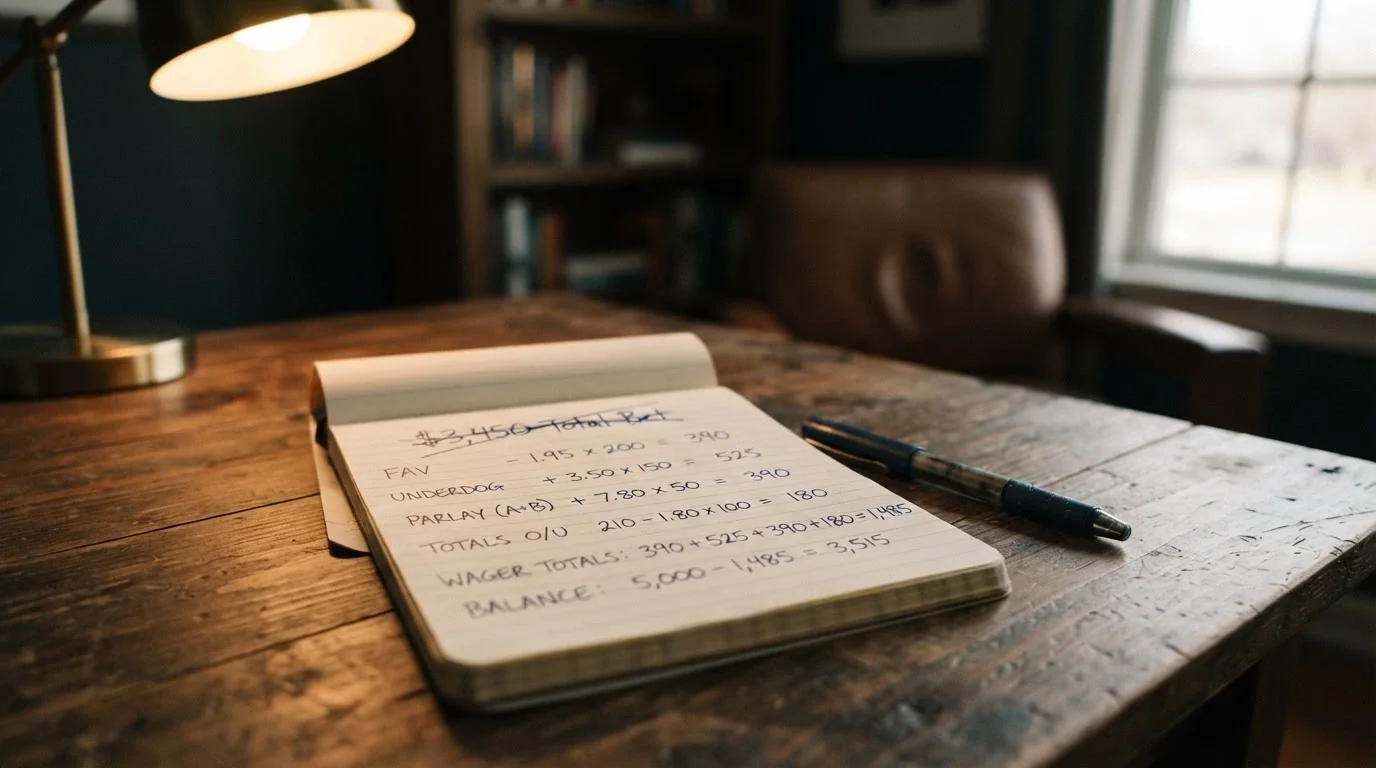 $3,450 Total Bet
FAV - 1.95 x 200 = 390
UNDERDOG + 3.50 x 150 = 525
PARLAY (A+B) + 7.80 x 50 = 390
TOTALS O/U 210 - 1.80 x 100 = 180
WAGER TOTALS: 390 + 525 + 390 + 180 = 1,485
BALANCE: 5,000 - 1,485 = 3,515